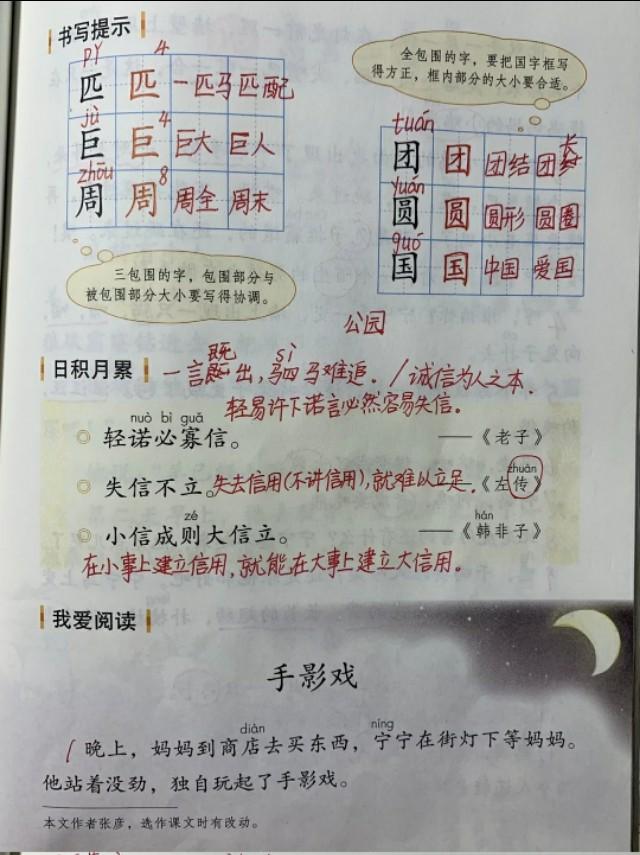 书写提示
全包围的字，要把国字框写
得方正，框内部分的大小要合适。
pǐ 4
匹 匹 一匹马 匹配
jù 4
巨 巨 巨大 巨人
zhōu 8
周 周 周全 周末
tuán
团 团 团结 团长
yuán
圆 圆 圆形 圆圈
guó
国 国 中国 爱国
三包围的字，包围部分与
被包围部分大小要写得协调。
公园
日积月累
既 sì
一言既出，驷马难追。/诚信为人之本。
轻易许下诺言必然容易失信。
nuò bì guǎ
◎ 轻诺必寡信。 ——《老子》
zhuàn
◎ 失信不立。失去信用(不讲信用)，就难以立足。《左传》
zé hán
◎ 小信成则大信立。 ——《韩非子》
在小事上建立信用，就能在大事上建立大信用。
我爱阅读
手影戏
diàn níng
1 晚上，妈妈到商店去买东西，宁宁在街灯下等妈妈。
他站着没劲，独自玩起了手影戏。
本文作者张彦，选作课文时有改动。